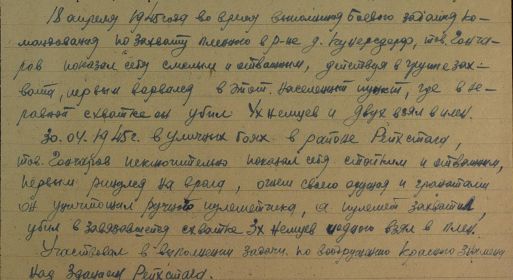 18 апреля 1945 года во время выполнения боевого задания ко-
мандования по захвату пленного в р-не д. Кунерсдорф, тов. Гонча-
ров показал себя смелым и отважным, действуя в группе зах-
вата, первым ворвался в этот населенный пункт, где в не-
равной схватке он убил 4х немцев и двух взял в плен.
30.04.1945г. в уличных боях в районе Рейхстага,
тов. Гончаров исключительно показал себя стойким и отважным,
первым ринулся на врага, огнем своего оружия и гранатами
он уничтожил ручного пулеметчика, а пулемет захватил,
убил в завязавшейся схватке 3х немцев и одного взял в плен.
Участвовал в выполнении задачи по водружению Красного Знамени
над зданием Рейхстага.